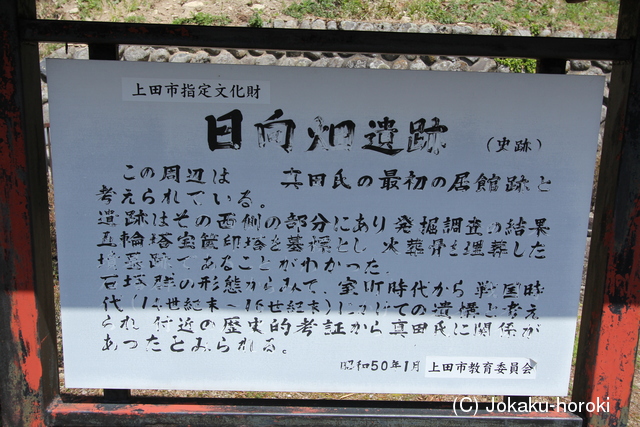 上田市指定文化財
日向畑遺跡 (史跡)
この周辺は 真田氏の最初の居館跡と
考えられている。
遺跡はその西側の部分にあり 発掘調査の結果
五輪塔宝篋印塔を墓標とし 火葬骨を埋葬した
墳墓跡であることがわかった。
石塔群の形態からみて、室町時代から戦国時
代(14世紀末~16世紀末)にかけての遺構と考え
られ 付近の歴史的考証から真田氏に関係が
あったとみられる。
昭和50年1月 上田市教育委員会
(C) Jokaku-horoki